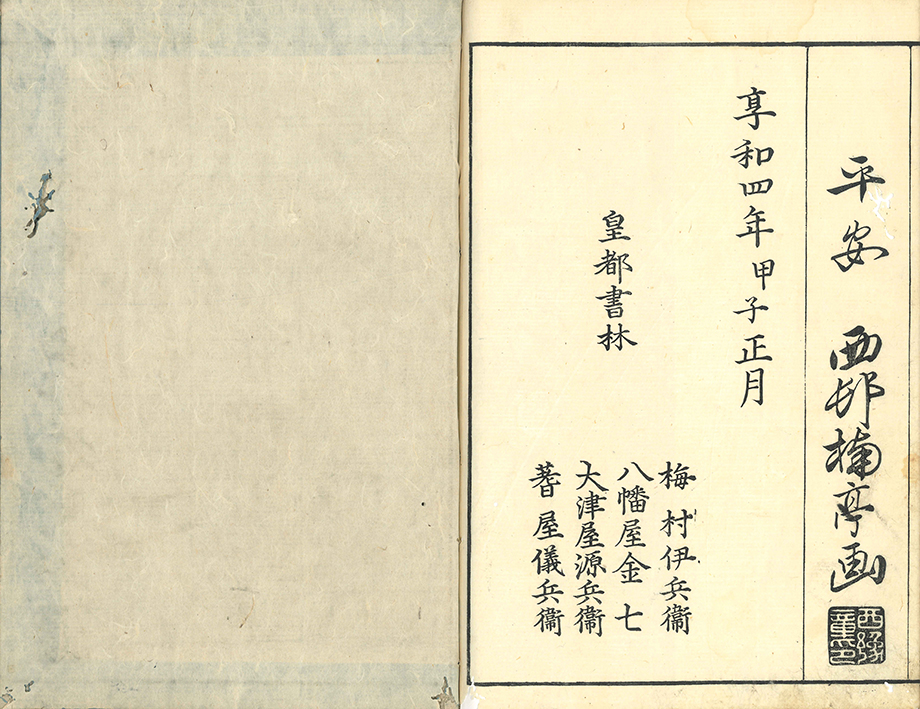 平安 西邨楠亭画
享和四年甲子正月
皇都書林
梅村伊兵衞
八幡屋金七
大津屋源兵衞
蓍屋儀兵衞